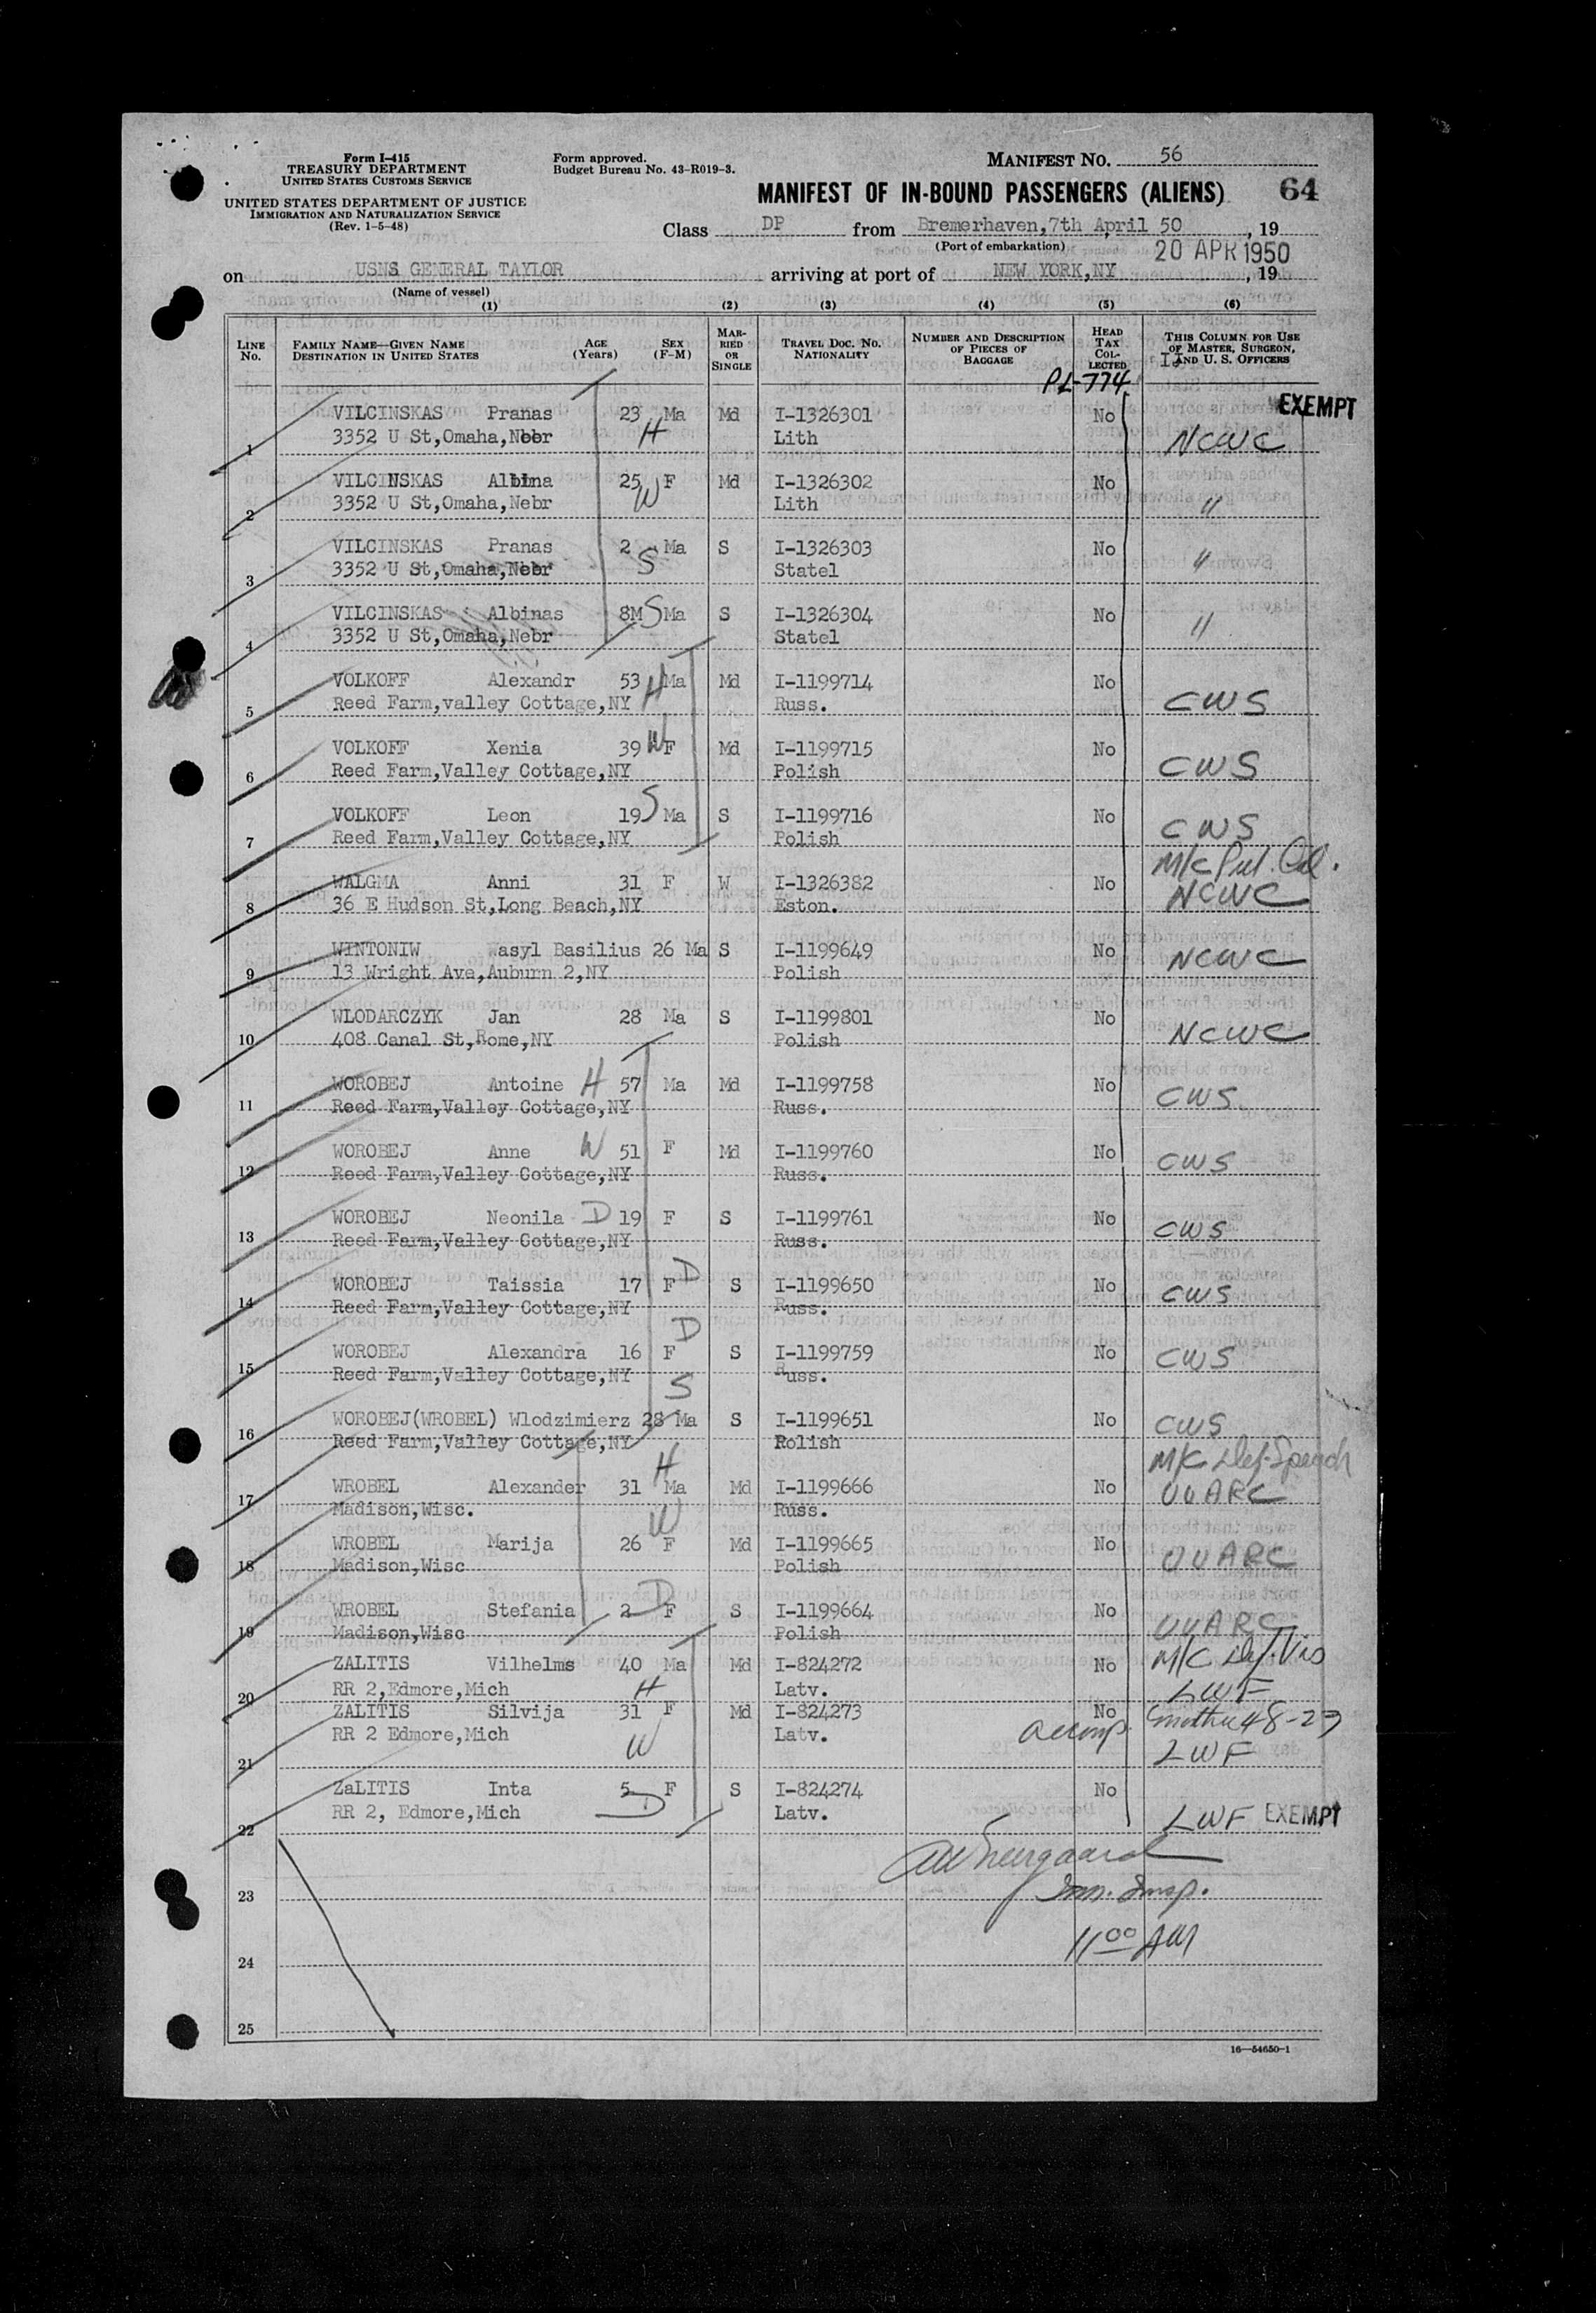 Form I-415
TREASURY DEPARTMENT
UNITED STATES CUSTOMS SERVICE
UNITED STATES DEPARTMENT OF JUSTICE
IMMIGRATION AND NATURALIZATION SERVICE
(Rev. 1-5-48)
Form approved.
Budget Bureau No. 43-R019-3.
MANIFEST NO. 56
MANIFEST OF IN-BOUND PASSENGERS (ALIENS) 64
Class DP from Bremerhaven,7th April 50, 19
(Port of embarkation) 20 APR 1950
on USNS GENERAL TAYLOR arriving at port of NEW YORK,NY, 19
(Name of vessel)
(1) (2) (3) (4) (5) (6)
LINE No. FAMILY NAME—GIVEN NAME DESTINATION IN UNITED STATES AGE (Years) SEX (F-M) MARRIED OR SINGLE TRAVEL DOC. NO. NATIONALITY NUMBER AND DESCRIPTION OF PIECES OF BAGGAGE HEAD TAX COLLECTED THIS COLUMN FOR USE OF MASTER, SURGEON, AND U. S. OFFICERS
PL-774
EXEMPT
VILCINSKAS Pranas 23 Ma Md I-1326301 No
1 3352 U St,Omaha,Nebr H Lith NCWC
VILCINSKAS Albina 25 F Md I-1326302 No
2 3352 U St,Omaha,Nebr W Lith "
VILCINSKAS Pranas 2 Ma S I-1326303 No
3 3352 U St,Omaha,Nebr S Statel "
VILCINSKAS Albinas 8M S Ma S I-1326304 No
4 3352 U St,Omaha,Nebr Statel "
VOLKOFF Alexandr 53 H Ma Md I-1199714 No
5 Reed Farm,valley Cottage,NY Russ. CWS
VOLKOFF Xenia 39 W F Md I-1199715 No
6 Reed Farm,Valley Cottage,NY Polish CWS
VOLKOFF Leon 19 S Ma S I-1199716 No
7 Reed Farm,Valley Cottage,NY Polish CWS
M/C Pul. Cal.
WALGMA Anni 31 F W I-1326382 No
8 36 E Hudson St,Long Beach,NY Eston. NCWC
WINTONIW Wasyl Basilius 26 Ma S I-1199649 No
9 13 Wright Ave,Auburn 2,NY Polish NCWC
WLODARCZYK Jan 28 Ma S I-1199801 No
10 408 Canal St,Rome,NY Polish NCWC
WOROBEJ Antoine H 57 Ma Md I-1199758 No
11 Reed Farm,Valley Cottage,NY Russ. CWS
WOROBEJ Anne W 51 F Md I-1199760 No
12 Reed Farm,Valley Cottage,NY Russ. CWS
WOROBEJ Neonila D 19 F S I-1199761 No
13 Reed Farm,Valley Cottage,NY Russ. CWS
WOROBEJ Taissia 17 F D S I-1199650 No
14 Reed Farm,Valley Cottage,NY Russ. CWS
WOROBEJ Alexandra 16 F D S I-1199759 No
15 Reed Farm,Valley Cottage,NY Russ. CWS
S
WOROBEJ(WROBEL) Wlodzimierz 28 Ma S I-1199651 No
16 Reed Farm,Valley Cottage,NY Polish CWS
M/C Def. Speech
WROBEL Alexander 31 H Ma Md I-1199666 No
17 Madison,Wisc. Russ. UUARC
WROBEL Marija 26 W F Md I-1199665 No
18 Madison,Wisc Polish UUARC
WROBEL Stefania 2 D F S I-1199664 No
19 Madison,Wisc Polish UUARC
ZALITIS Vilhelms 40 Ma Md I-824272 No M/C Def. Vis
20 RR 2,Edmore,Mich H Latv. LWF
ZALITIS Silvija 31 F Md I-824273 No
RR 2 Edmore,Mich W Latv. accomp. mother 48-23
21 LWF
ZaLITIS Inta 5 F S I-824274 No
RR 2, Edmore,Mich D Latv.
22 LWF EXEMPT
23 Imm. Insp.
11 00 AM
24
25
16—54650-1